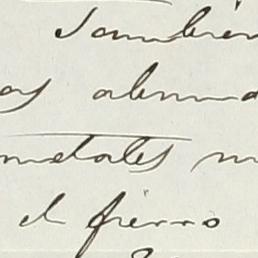 Tambien
os abunda
metales
el fierro